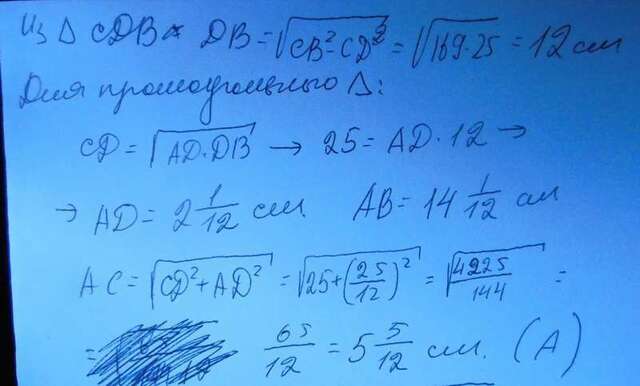 Из Δ CDB DB = √(CB² - CD²) = √(169-25) = 12 см
Для прямоугольного Δ:
CD = √(AD·DB) → 25 = AD·12 →
→ AD = 2 1/12 см. AB = 14 1/12 см
AC = √(CD² + AD²) = √(25 + (25/12)²) = √(4225/144) =
= 65/12 = 5 5/12 см. (A)